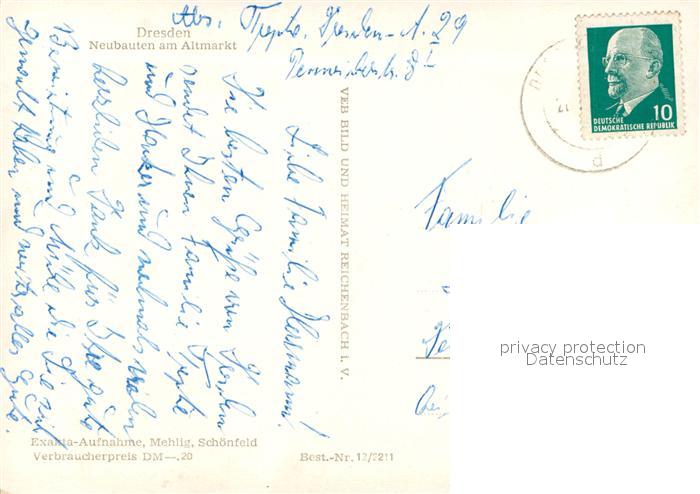 Dresden
Neubauten am Altmarkt
Abs. Trepte, Dresden-A. 29
DEUTSCHE
DEMOKRATISCHE REPUBLIK
10
d
VEB BILD UND HEIMAT REICHENBACH I. V.
Liebe Familie Herrmann!
Die besten Grüße von Dresden
sendet Ihnen Familie Trepte
und und nochmals vielen
herzlichen Dank für Ihre gute
Bewirtung und Mühe die Sie mit
gemacht haben und weiter alles Gute.
Familie
privacy protection
Datenschutz
Exakta-Aufnahme, Mehlig, Schönfeld
Verbraucherpreis DM—.20
Best.-Nr. 12/2211